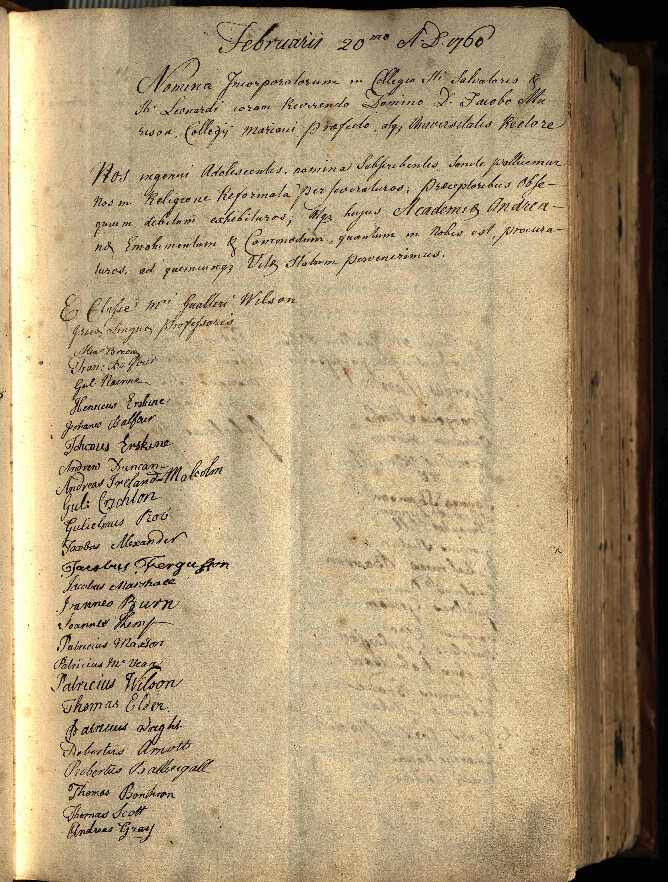 Februarii 20mo A.D. 1760
Nomina Incorporatorum in Collegio Sti Salvatoris &
Sti Leonardi coram Reverendo Domino D. Jacobo Mu
rison, Collegij Mariani Præfecto, atq Universitatis Rectore
Nos ingenui Adolescentes, nomina Subscribentes, Sancte pollicemur
Nos in Religione Reformata perseveraturos; Præceptoribus Obse-
quium debitum exhibituros; atq hujus Academiæ Andrea-
næ Emolumentum & Commodum, quantum in Nobis est, procura-
turos, ad quemcunq Vitæ Statum pervenerimus.
E Classe Mri Gualteri Wilson
Græcæ Linguæ Professoris
Gul Nairne
Henricus Erskine
Johanes Balfour
Thomas Erskine
Andrew Duncan
Andreas Ireland Malcolm
Gul: Crichton
Gulielmus Rob
Jacobus Alexander
Jacobus Ferguson
Jacobus Marshall
Joannes Burn
Joannes Kemp
Patricius Maxton
Patricius Mc Vean
Patricius Wilson
Thomas Elder
Patricius Wright
Robertus Arnott
Robertus Ballingall
Thomas Bonthron
Thomas Scott
Andreas Gray